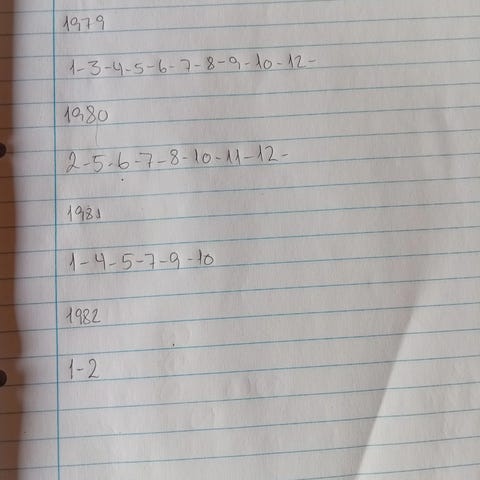 1979
1-3-4-5-6-7-8-9-10-12-
1980
2-5-6-7-8-10-11-12-
1981
1-4-5-7-9-10
1982
1-2